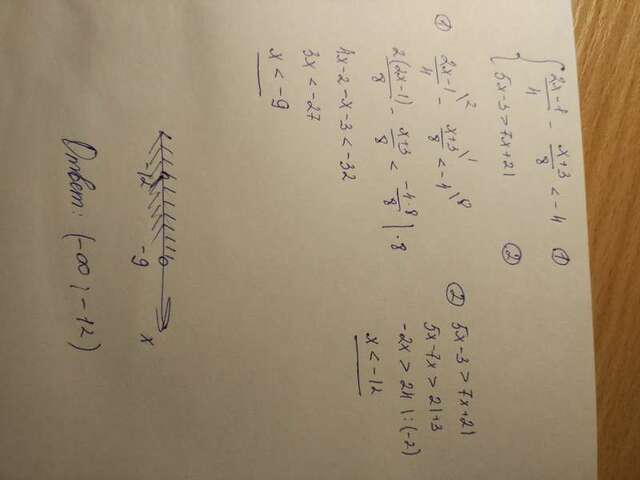 { (2x-1)/4 - (x+3)/8 < -4 ①
5x-3 > 7x+21 ②
① (2x-1)/4 \2 - (x+3)/8 \1 < -4 \8
2(2x-1)/8 - (x+3)/8 < (-4·8)/8 | ·8
4x-2-x-3 < -32
3x < -27
x < -9
② 5x-3 > 7x+21
5x-7x > 21+3
-2x > 24 | :(-2)
x < -12
-12 -9 x
Ответ: (-∞; -12)